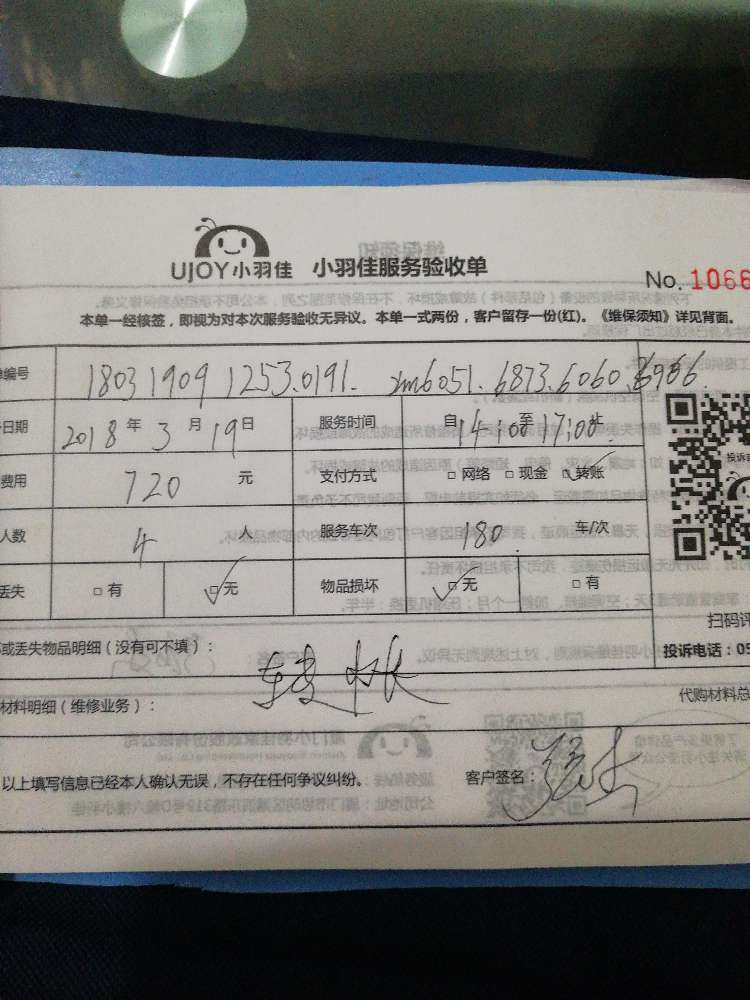 UJOY小羽佳 小羽佳服务验收单
No. 1066
本单一经核签，即视为对本次服务验收无异议。本单一式两份，客户留存一份(红)。《维保须知》详见背面。
单编号 18031909 1253.0191. xm6051.6873.6060.6966.
日期 2018年3月19日 服务时间 自14:00至17:00止
费用 720 元 支付方式 □网络 □现金 ☑转账
人数 4 人 服务车次 180. 车/次
丢失 □有 ☑无 物品损坏 ☑无 □有
投诉
扫码评
或丢失物品明细（没有可不填）：
投诉电话：05
材料明细（维修业务）：
代购材料总
以上填写信息已经本人确认无误，不存在任何争议纠纷。 客户签名：